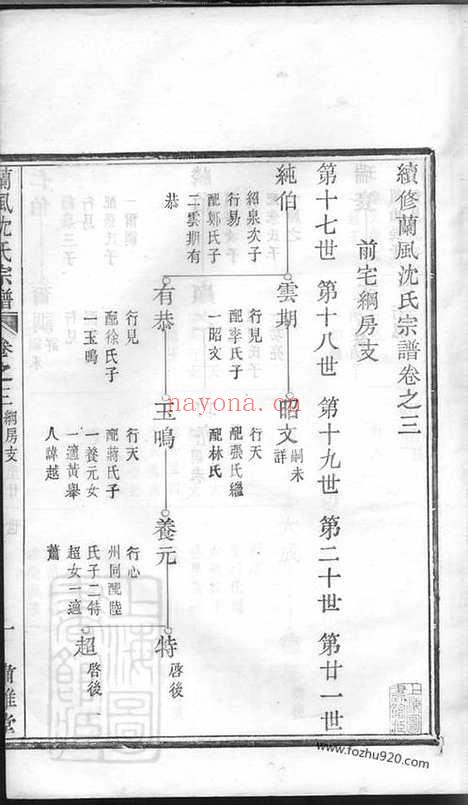 續修蘭風沈氏宗譜卷之三
前宅綱房支
第十七世 第十八世 第十九世 第二十世 第廿一世
純伯
紹泉次子
行易
配鄭氏子
二雲期有
恭
雲期
行見
配李氏子
一昭文
昭文
嗣未
詳
行天
配張氏繼
配林氏
有恭
行見
配徐氏子
一玉鳴
玉鳴
行天
配蔣氏子
一養元女
一適黃舉
人諱越
養元
行心
州同配陸
氏子二特
超女一適
蕭
特
啓後
超
啓後
蘭風沈氏宗譜
卷之三
綱房支
一
清雅堂
nayona.cn
www.fozhu920.com
上海圖書館藏